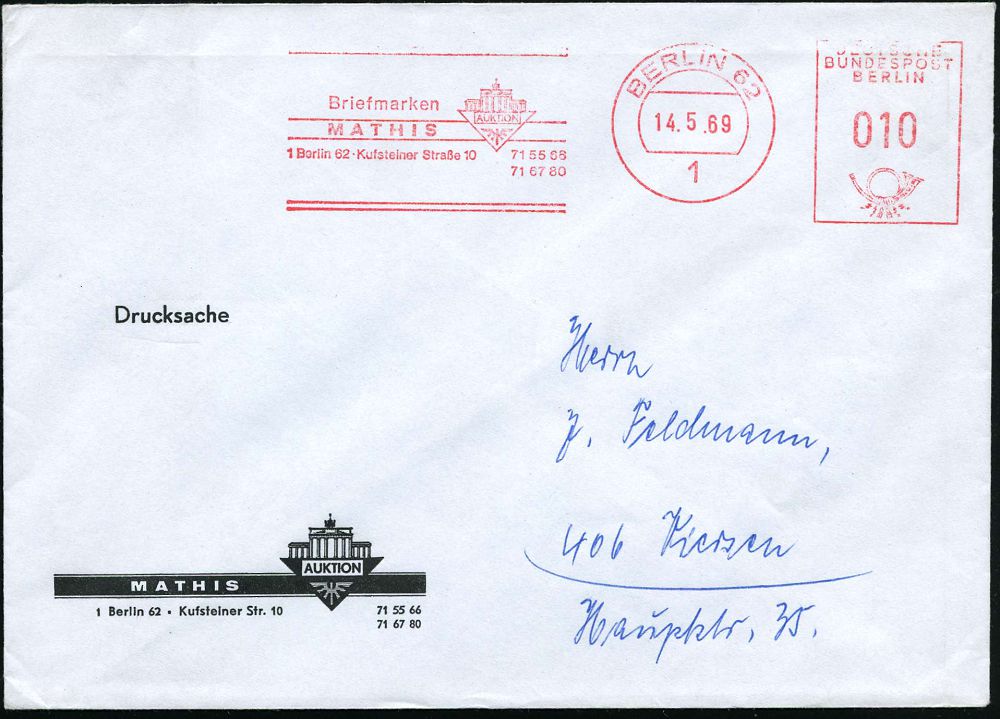 Briefmarken
MATHIS
AUKTION
1 Berlin 62·Kufsteiner Straße 10 71 55 66
71 67 80
BERLIN 62
14.5.69
1
DEUTSCHE
BUNDESPOST
BERLIN
010
Drucksache
Herrn
J. Feldmann,
406 Viersen
Hauptstr. 35.
AUKTION
MATHIS
1 Berlin 62 • Kufsteiner Str. 10 71 55 66
71 67 80